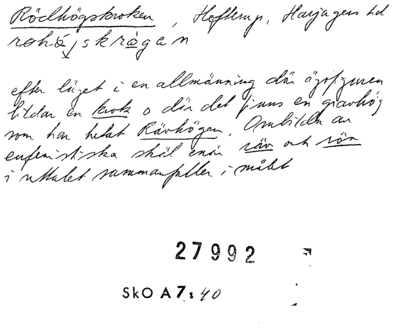 Rödhögskroken, Hofterup, Harjagers hd
röhöjskrögan
efter läget i en allmänning där ägofiguren
bildar en krok o där det finns en gravhög
som har hetat Rävhögen. Ombildn av
eufemistiska skäl enär räv och röv
i uttalet sammanfaller i målet
27992
SkO A7: 40